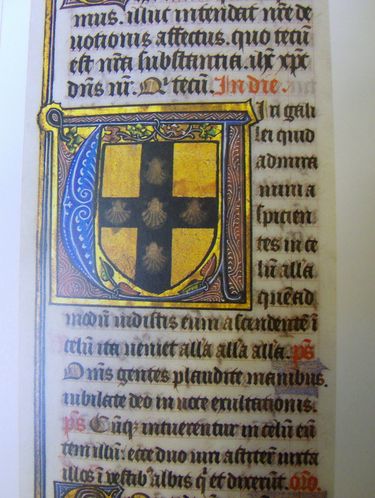 mus. illuc intendat nr̄e de
uotionis affectus. quo tecū
est nr̄a substantia. ih̄c xp̄c
dn̄s nr̄. Qͥ tecū. In die
Uiri gali
lei quid
admira
mini a
spicien
tes in ce
lū alla
quēad
modū uidistis eum ascendentē ī
celū ita ueniet alla alla alla. ps
Omēs gentes plaudite manibus.
iubilate deo in uoce exultationis.
ps Cūq intuerentur in celū eū
tem illū. ecce duo uiri astiterūt iuxta
illos ī vestibꝰ albis qͥ et dixerūt. oro